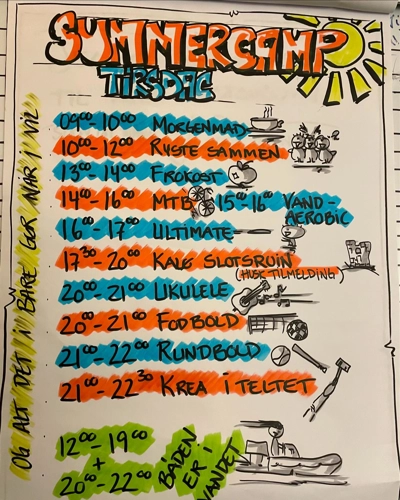 SUMMERCAMP
TIRSDAG
09⁰⁰-10⁰⁰ MORGENMAD
10⁰⁰-12⁰⁰ RYSTE SAMMEN
13⁰⁰-14⁰⁰ FROKOST
14⁰⁰-16⁰⁰ MTB 15⁰⁰-16⁰⁰ VAND-
AEROBIC
16⁰⁰-17⁰⁰ ULTIMATE
17³⁰-20⁰⁰ KALØ SLOTSRUIN
(HUSK TILMELDING)
20⁰⁰-21⁰⁰ UKULELE
20⁰⁰-21⁰⁰ FODBOLD
21⁰⁰-22⁰⁰ RUNDBOLD
21⁰⁰-22³⁰ KREA I TELTET
12⁰⁰-19⁰⁰
+
20⁰⁰-22⁰⁰
BÅDEN
ER I
VANDET
OG ALT DET I BARE GØR NÅR I VIL